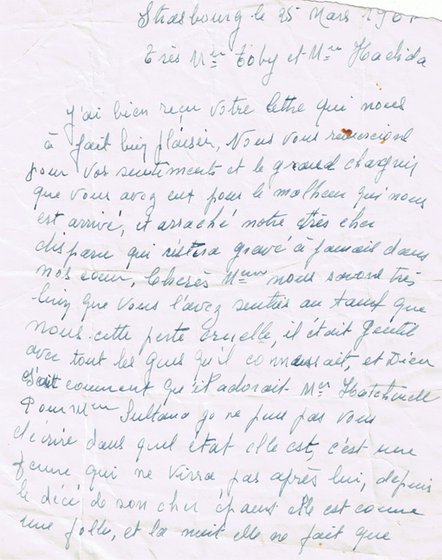 Strasbourg le 25 Mars 19
Très Mme Toby et Mme Hachida
j'ai bien reçu votre lettre qui nous
à fait bien plaisir, Nous vous remercions
pour vos sentiments et le grand chagrin
que vous avez eux pour le malheur qui nous
est arrivé, et arraché notre très cher
disparu qui restera gravé à jamais dans
nos cœur, Cherès Mmes nous savons très
bien que vous l'avez senties au tant que
nous cette perte cruelle, il était gentil
avec tout les gens qu'il connaissait, et Dieu
sait comment qu'il adorait Mr
Pour Mme Sultana je ne peu pas vous
décrire dans quel état elle est, c'est une
femme qui ne vivra pas après lui, depuis
le décé de son cher épous elle est comme
une folle, et la nuit elle ne fait que